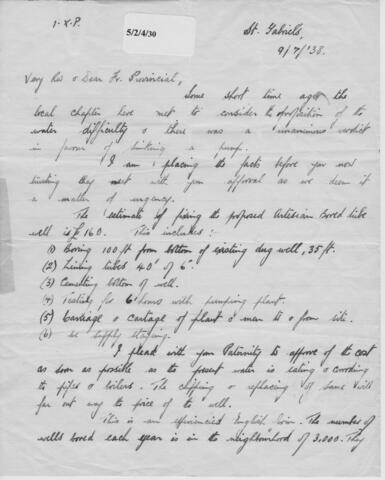 I.X.P.
5/2/4/30
St. Gabriels,
9/7/'38.
Very Rev & Dear Fr. Provincial,
Some short time ago the
local chapter here met to consider the of the
water difficulty & there was a unanimous verdict
in favour of sinking a pump.
I am placing the facts before you now
trusting they meet with your approval as we deem it
a matter of urgency.
The estimate of fixing the proposed Artesian Bored tube
well is £160. This includes:-
(1) Boring 100 ft from bottom of existing dug well, 35 ft.
(2) Lining tubes 40' of 6".
(3) Cementing bottom of well.
(4) Testing for 6 hours with pumping plant.
(5) Carriage & Cartage of plant & men to & from site.
(6) We supply staging.
I plead with your Paternity to approve of the cost
as soon as possible as the present water is eating & corroding
the pipes & boilers. The & replacing of same will
far out way the price of the well.
This is an experienced English Firm. The number of
wells bored each year is in the neighbourhood of 3,000. They